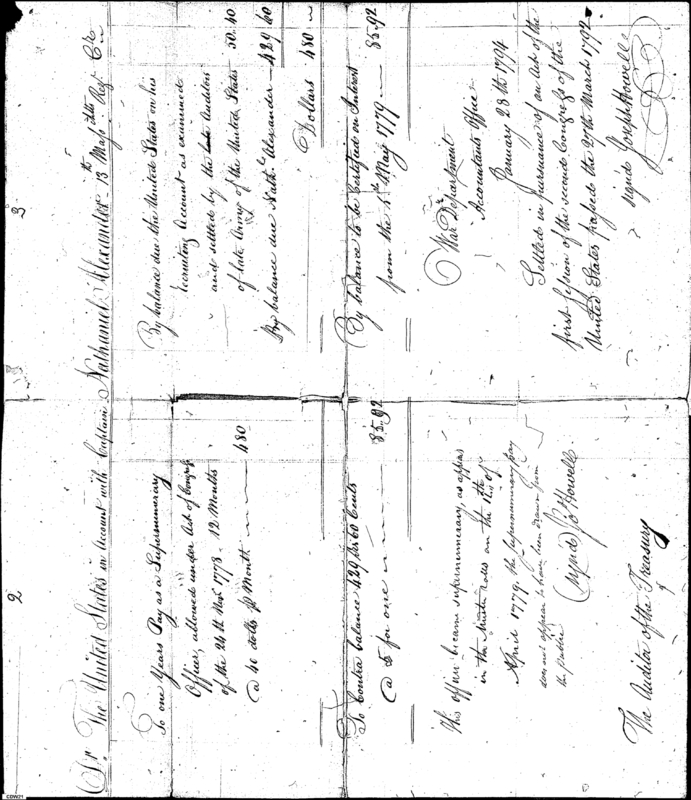 2
3
Dr. The United States in Account with Captain Nathaniel Alexander 13th Massts Regt Cr
To one Years Pay as a Supernumerary
Officer, allowed under Act of Congress
of the 24th Novr 1778. 12 Months
@ 40 dolls p Month 480
To Contra balance 429 60 Cents
@ 5 for one 85.92
This officer became supernumerary, as appears
in the Muster rolls on the of
April 1779. the supernumerary pay
does not appear to have been drawn from
the public
(signed) Jos Howell
The Auditor of the Treasury
By balance due the United States on his
recruiting Account as examined
and settled by the late Auditors
of late Army of the United States 50.40
By balance due Nathl Alexander 429 60
Dollars 480
By balance to be Certified on Interest
from the 5th May 1779 85.92
War Department
Accountants Office
January 28th 1794
Settled in pursuance of an Act of the
first Session of the second Congress of the
United States passed the 27th March 1792
signd Joseph Howell
CDW01